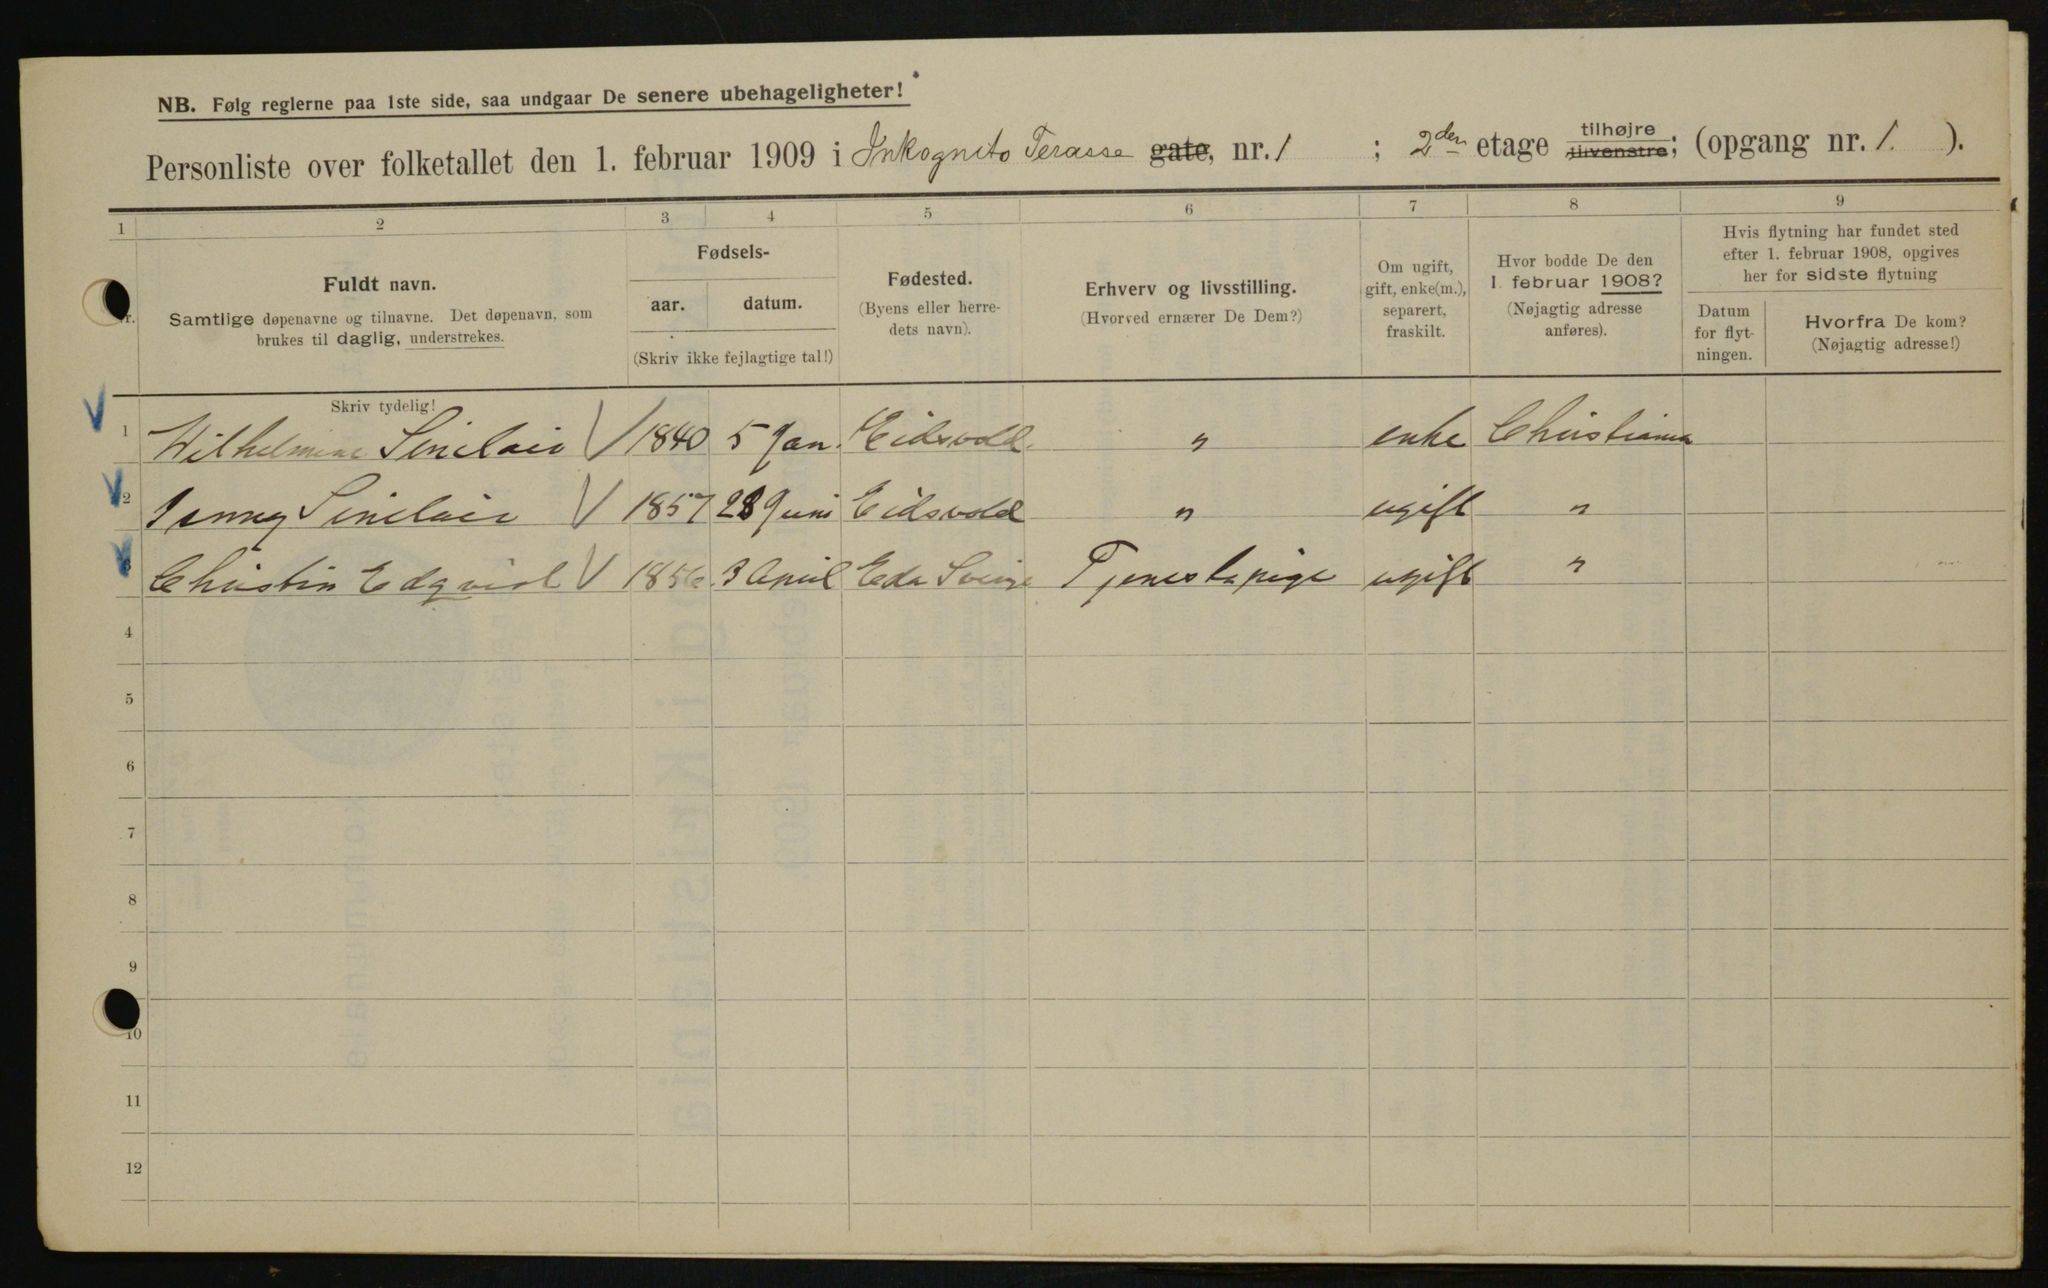 NB. Følg reglerne paa 1ste side, saa undgaar De senere ubehageligheter!
Personliste over folketallet den 1. februar 1909 i Inkognito Terasse gate, nr. 1 ; 2den etage tilhøjre tilvenstre; (opgang nr. 1. ).
1 2 3 4 5 6 7 8 9
Fuldt navn.
Samtlige døpenavne og tilnavne. Det døpenavn, som
brukes til daglig, understrekes.
Fødsels-
aar. datum.
(Skriv ikke fejlagtige tal!)
Fødested.
(Byens eller herre-
dets navn).
Erhverv og livsstilling.
(Hvorved ernærer De Dem?)
Om ugift,
gift, enke(m.),
separert,
fraskilt.
Hvor bodde De den
1. februar 1908?
(Nøjagtig adresse
anføres).
Hvis flytning har fundet sted
efter 1. februar 1908, opgives
her for sidste flytning
Datum
for flyt-
ningen.
Hvorfra De kom?
(Nøjagtig adresse!)
Skriv tydelig!
1 Wilhelmine Sinclair 1840 5 Jan. Eidsvold " enke Christiania
2 Sinclair 1857 28 Juni Eidsvold " ugift "
3 Christin Edqvist 1856. 3 April Eda Tjenestepige ugift "
4
5
6
7
8
9
10
11
12